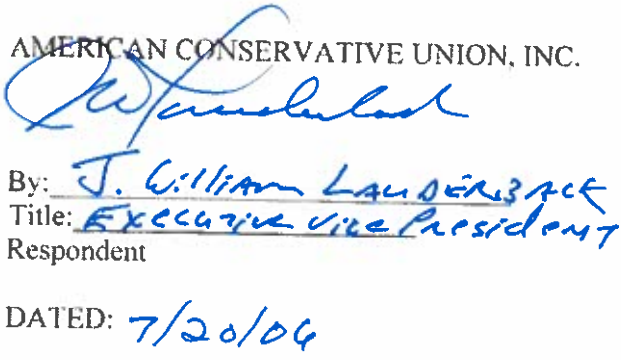 AMERICAN CONSERVATIVE UNION, INC.
By: J. William Lauderback
Title: Executive Vice President
Respondent
DATED: 7/20/06